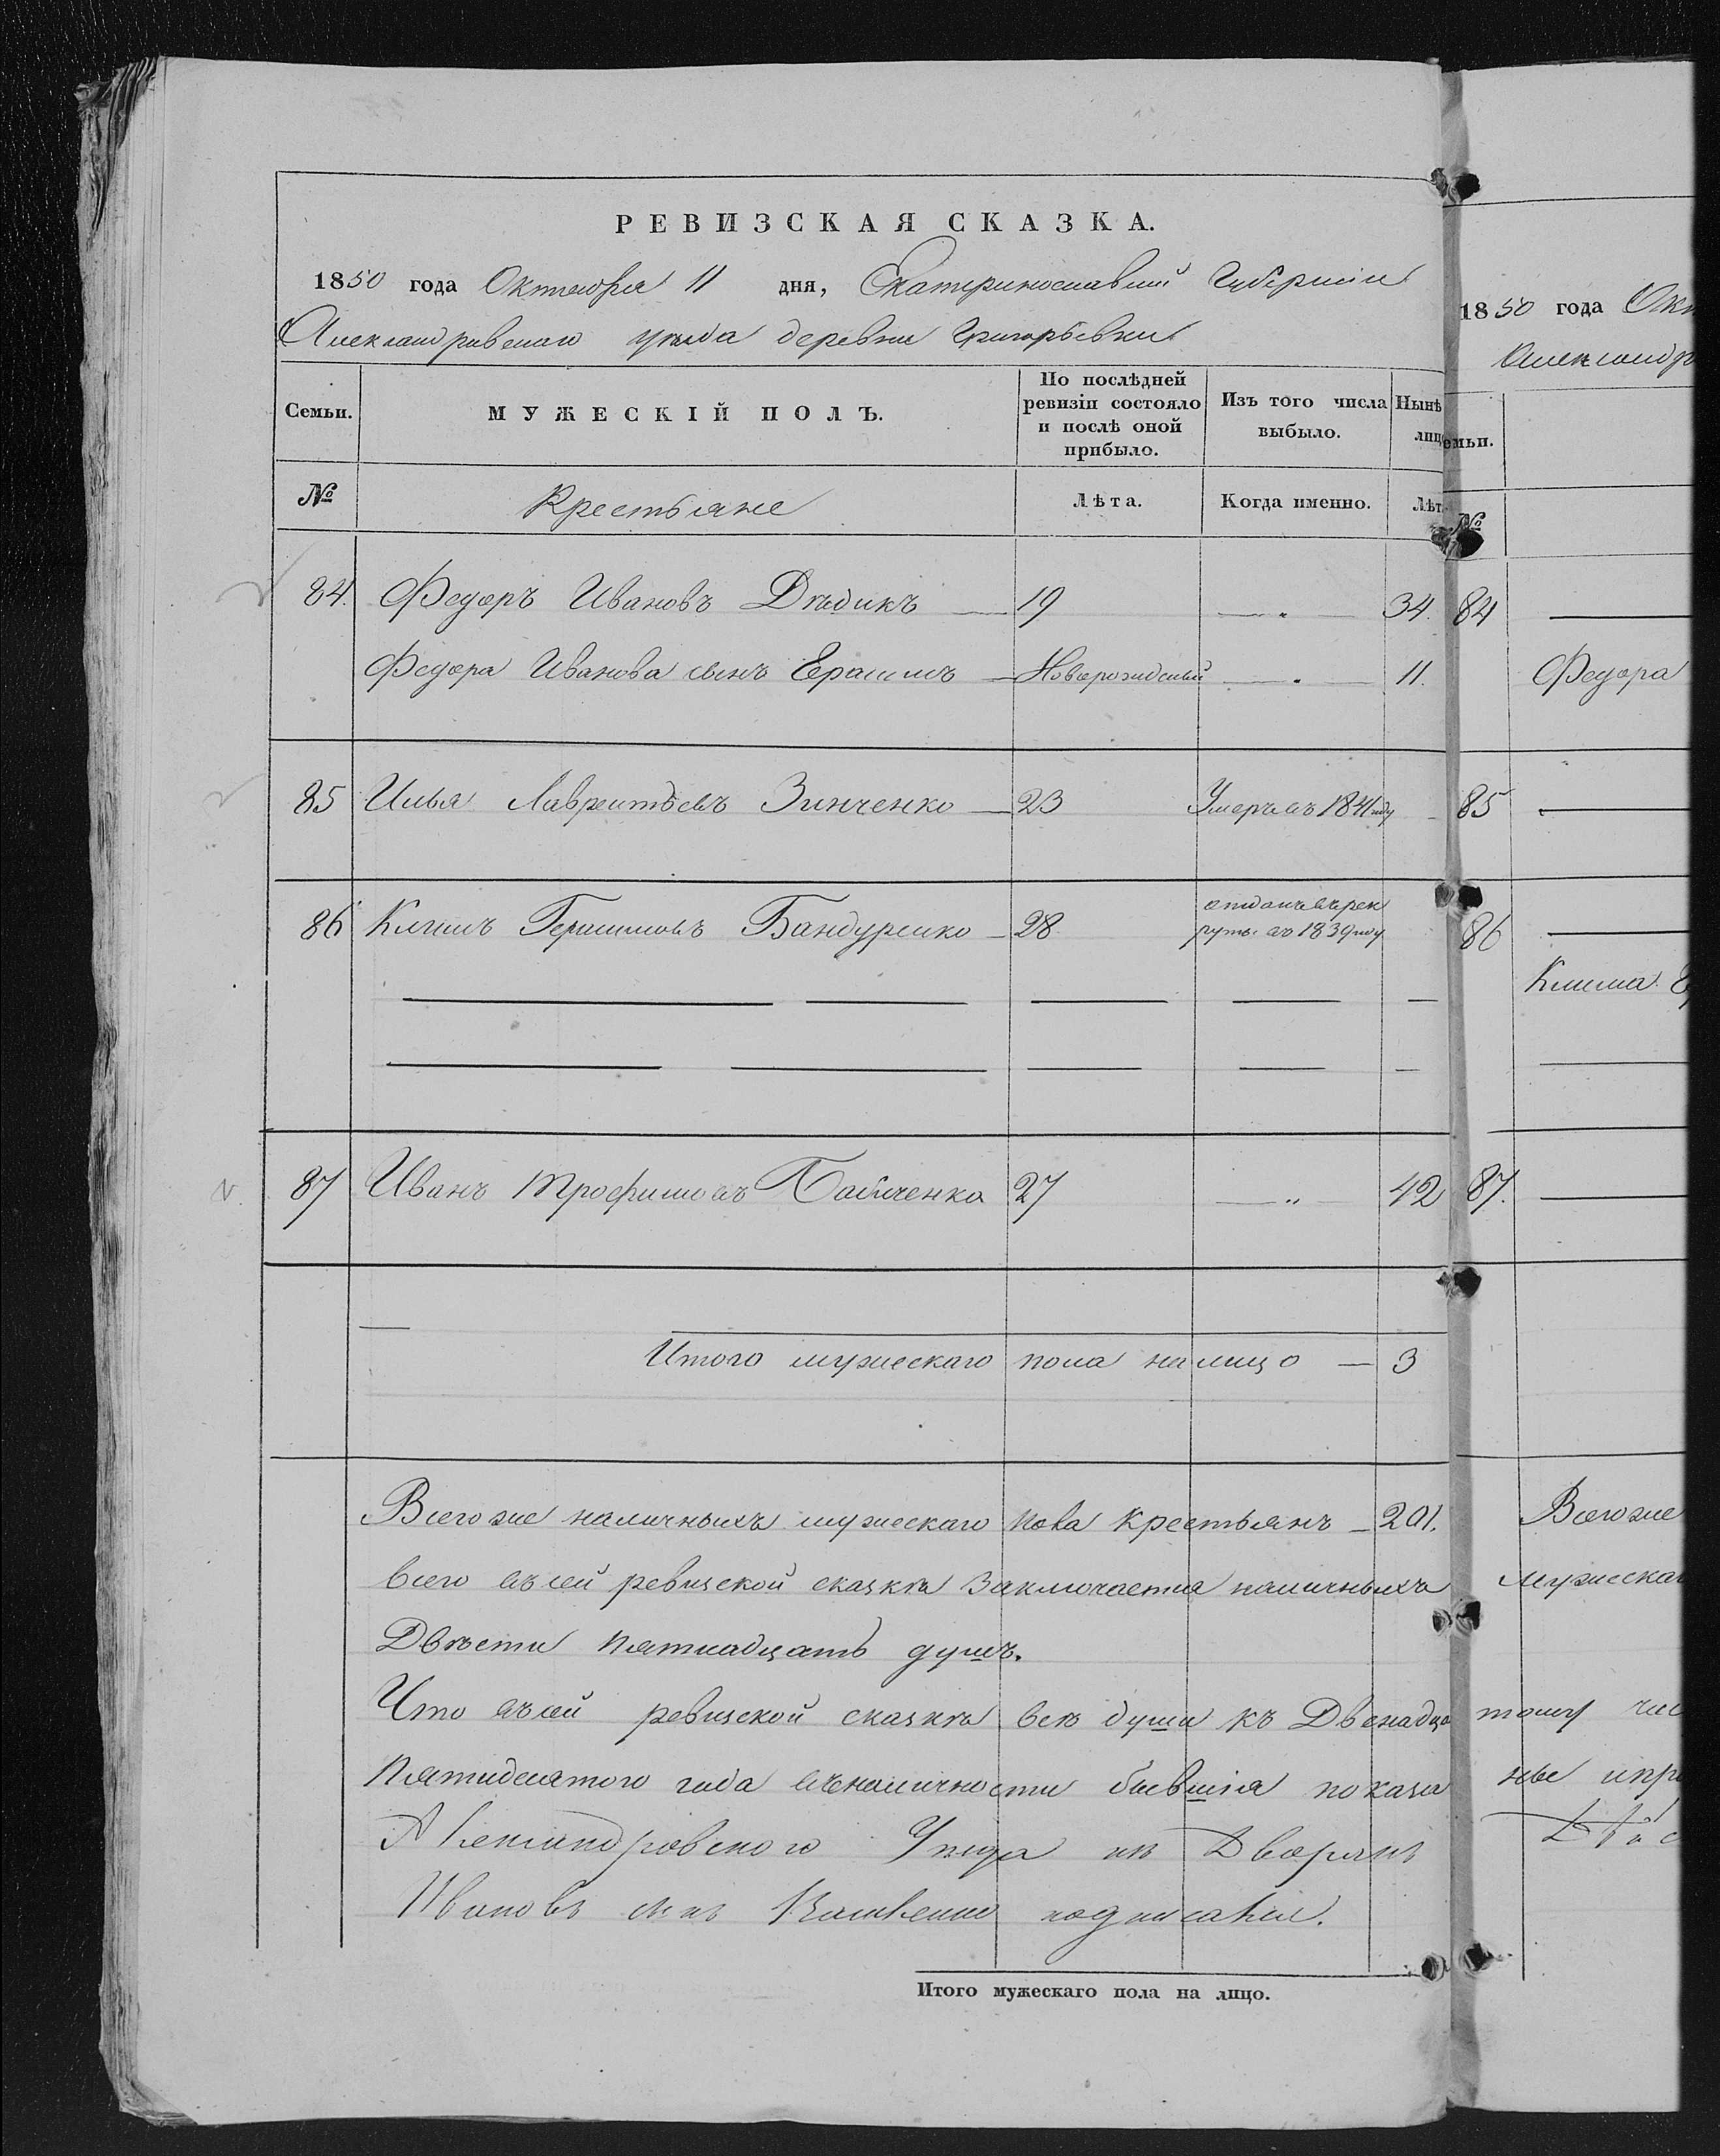 РЕВИЗСКАЯ СКАЗКА.
1850 года Октября 11 дня, Екатеринославской Губернiи
Александровскаго уѣзда деревни Григорьевки
Семьи. МУЖЕСКIЙ ПОЛЪ. По послѣдней ревизiи состояло и послѣ оной прибыло. Изъ того числа выбыло. Нынѣ лиц
№ Крестьяне Лѣта. Когда именно. Лѣт
84. Федоръ Ивановъ Дѣдикъ 19 — „ — 34.
Федора Иванова сынъ Ерасимъ Новорожденный — „ — 11.
85 Илья Лаврентьевъ Зинченко 23 Умеръ въ 1841 году
86 Климъ Герасимовъ Бандуренко 28 отданъ въ рек
рутъ въ 1839 году
87 Иванъ Трофимовъ Бабиченко 27 — „ 42
Итого мужескаго пола на лицо — 3
Всего же наличныхъ мужескаго пола крестьянъ — 201.
Всего въ сей ревизской сказкѣ заключается наличныхъ
Двѣсти пятнадцать душъ.
Что въ сей ревизской сказкѣ всѣ души къ Двенадца
Пятидесятого года въ наличности бывшiя показа
Александровского Уезда из Дворянъ
Ивановъ сынъ подписался.
Итого мужескаго пола на лицо.
1850 года Окт
Александр
емьи.
№
84
Федора
85
86
Клима Е
87.
Всего же
мужескаг
тому чис
ные и пр